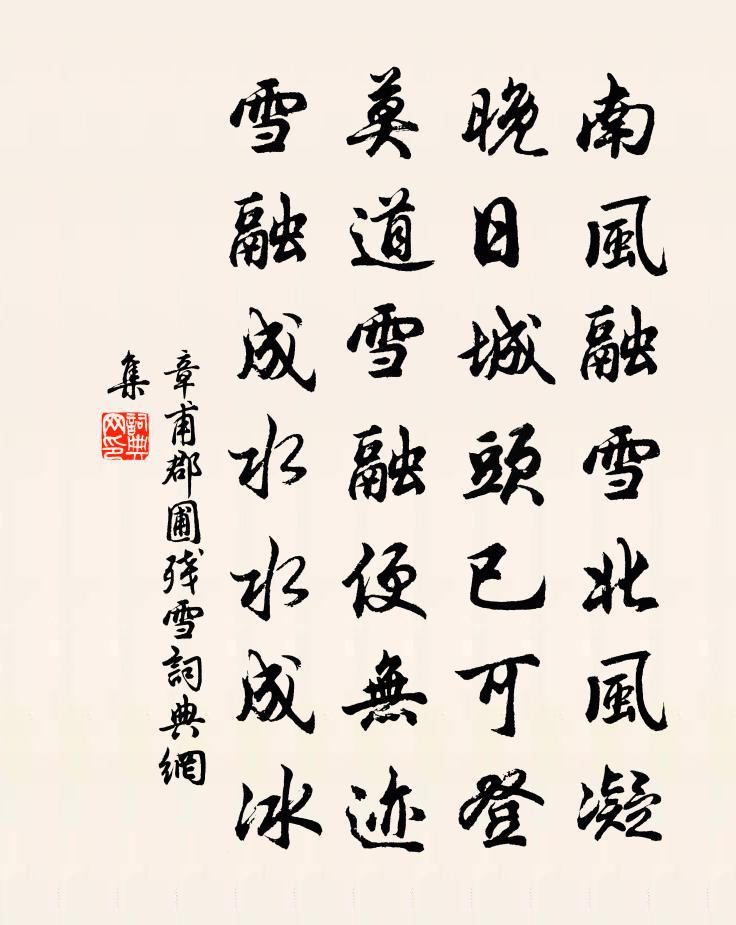 南風融雪北風凝
晚日城頭已可登
莫道雪融便無迹
雪融成水水成冰
章甫郡圃殘雪詞典網
集
詞典網印